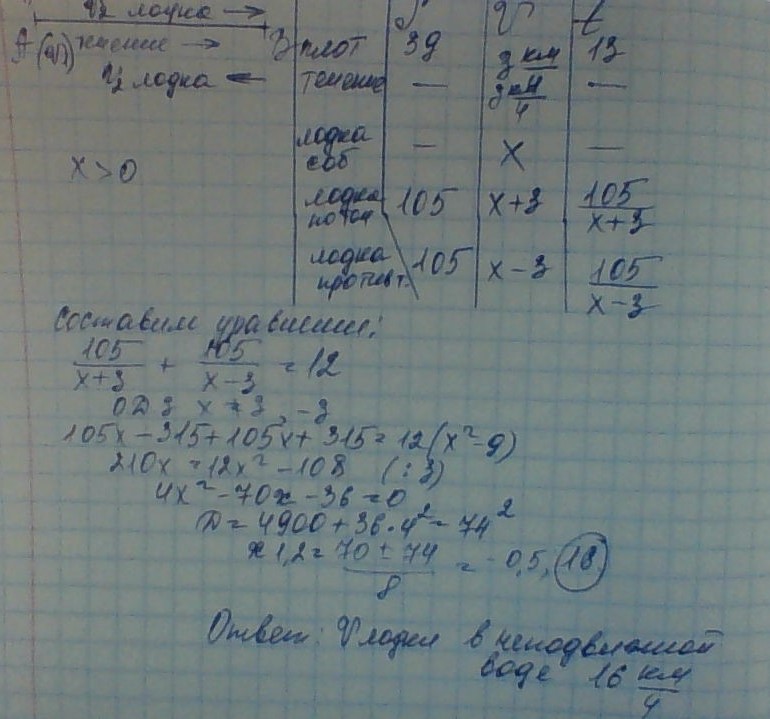 V₂ лодка →
А(ч) течение → В
V₂ лодка ←
x > 0
S V t
плот 39 3 км/ч 13
течение — 3 км/ч —
лодка соб — x —
лодка по теч 105 x+3 105/(x+3)
лодка против т. 105 x-3 105/(x-3)
Составим уравнение:
105/(x+3) + 105/(x-3) = 12
ОДЗ x ≠ 3, -3
105x - 315 + 105x + 315 = 12(x² - 9)
210x = 12x² - 108 (:3)
4x² - 70x - 36 = 0
D = 4900 + 36·4² = 74²
x 1,2 = (70 ± 74)/8 = -0,5, 18
Ответ: V лодки в неподвижной
воде 16 км/ч